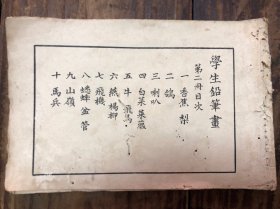 學生鉛筆畫
第二冊目次
一 香蕉 梨
二 鴿
三 喇叭
四 白菜 菜菔
五 牛 飛馬
六 燕 楊柳
七 飛機
八 蟋蟀 盆 管
九 山嶺
十 馬兵